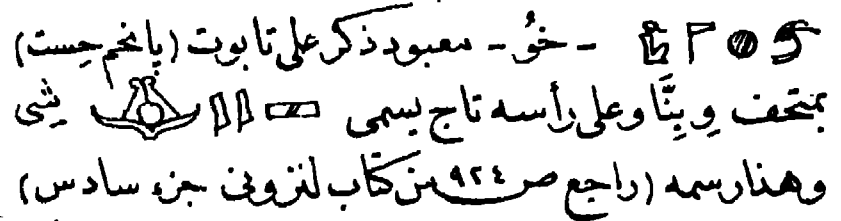 - خوُ - معبود ذكر على تابوت (پانخم حِست)
بمتحف وِينَّا وعلى رأسه تاج يسمى پشى
وهذا رسمه (راجع ص ٩٢٤ من كتاب لنزونى جزء سادس)